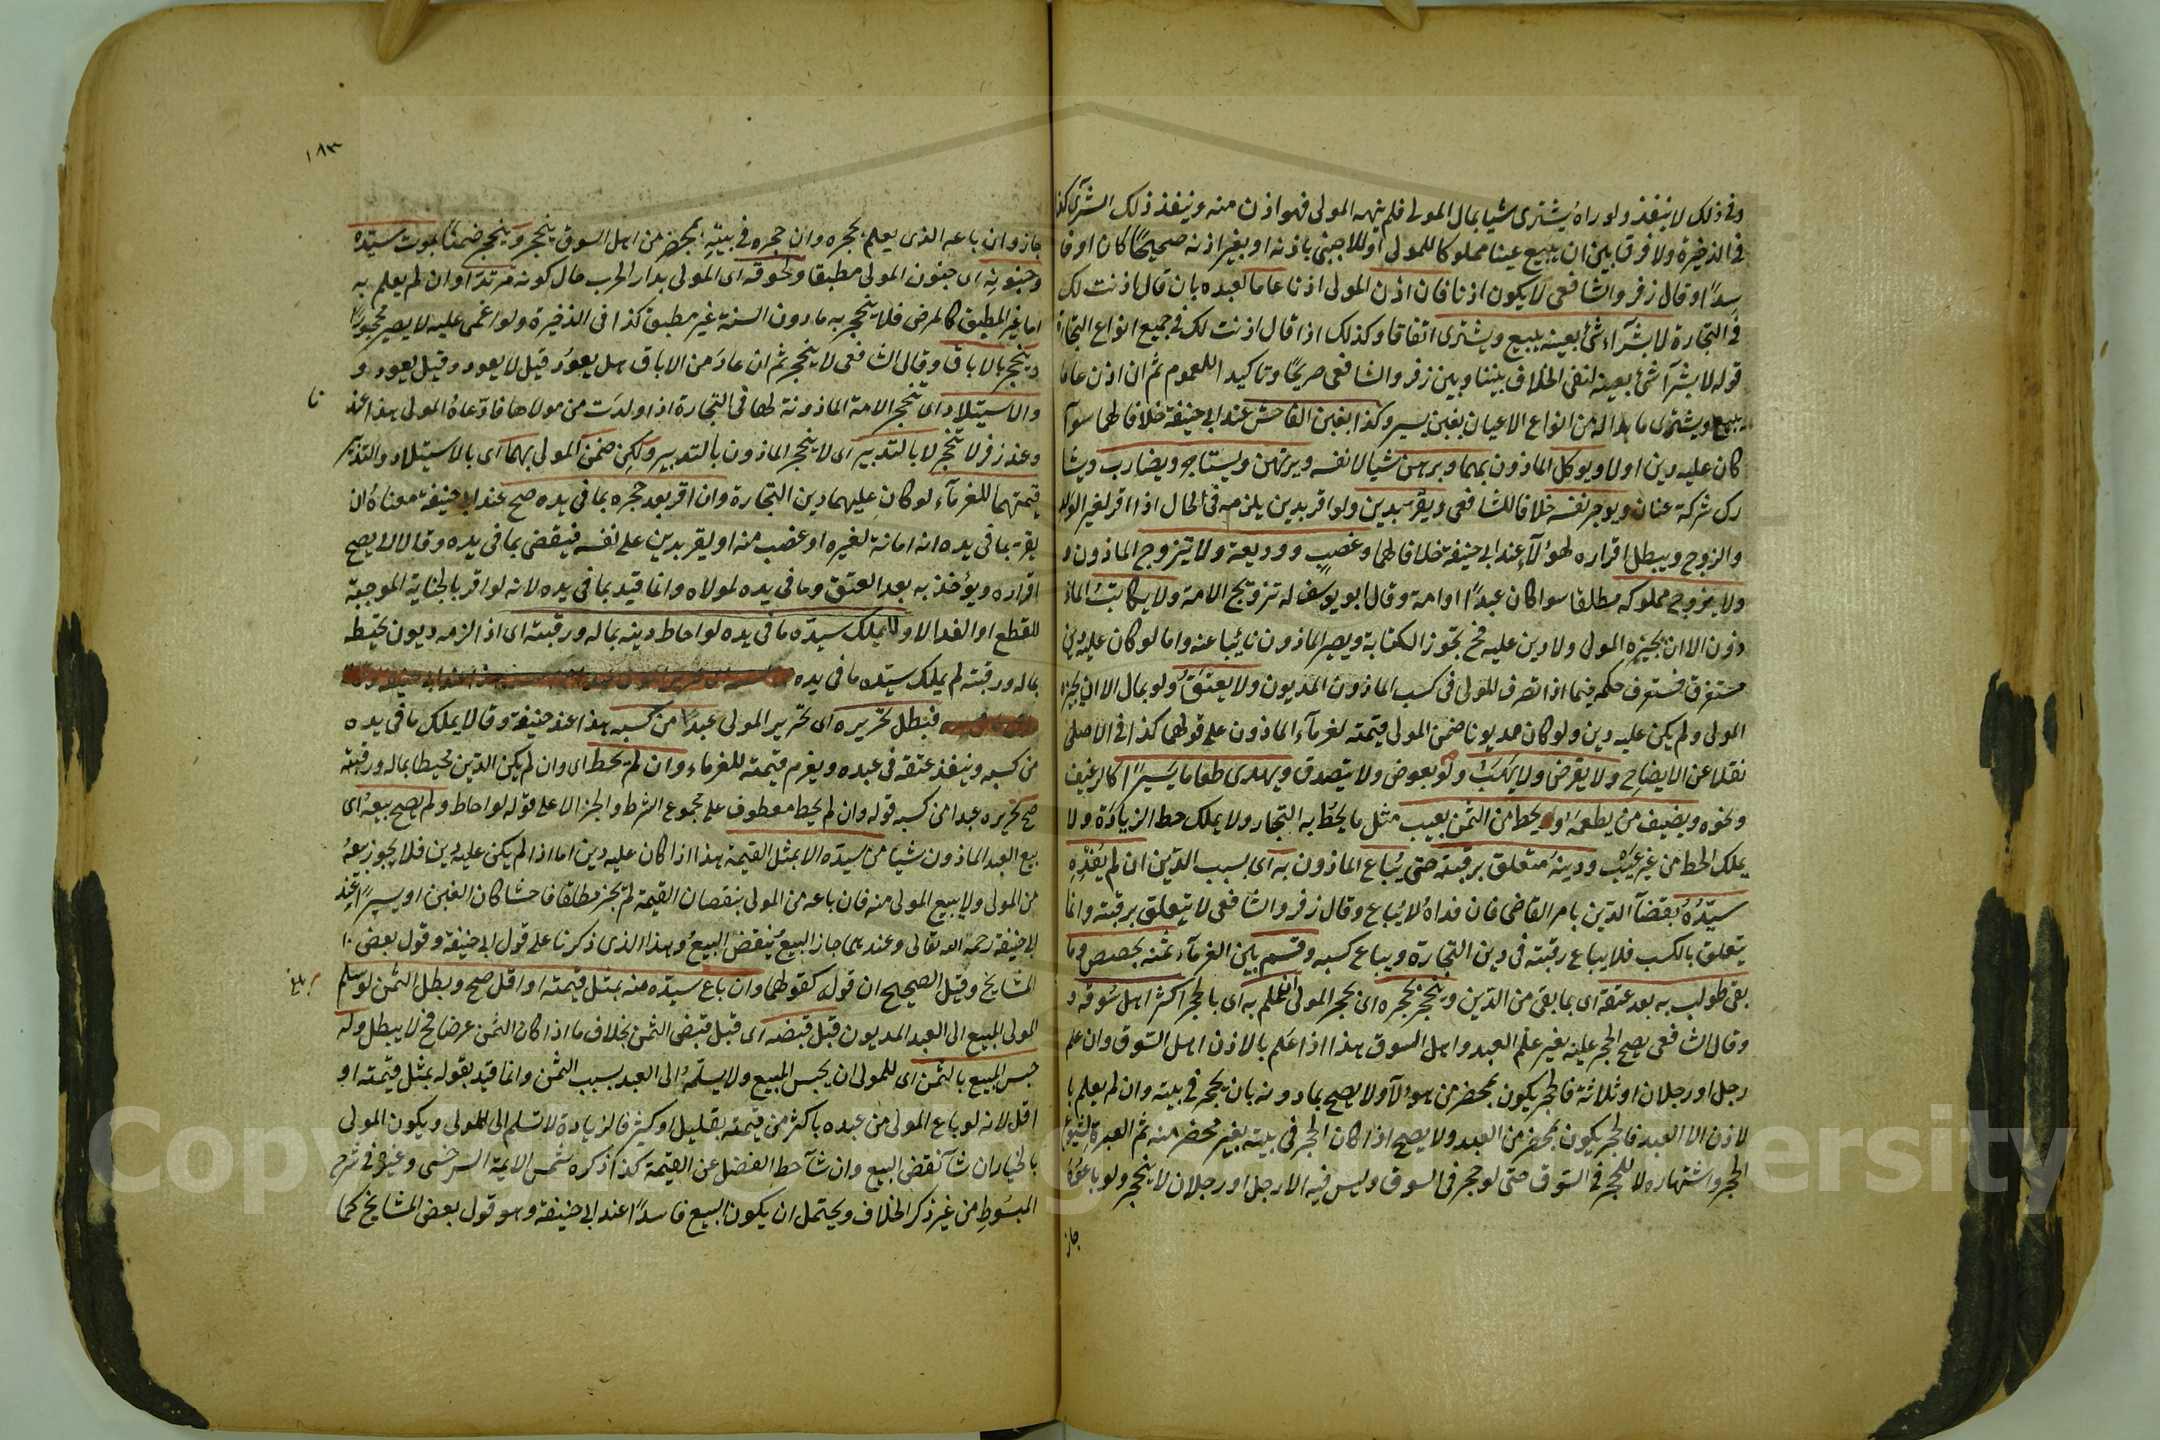 وفي ذلك لا ينفذ ولو راه يشترى شيا بمال المولى فلم ينهه المولى فهو اذن منه وينفذ ذلك الشرآء كذا
في الذخيرة ولا فرق بين ان يبيع عينا مملوكا للمولى او للاجنبى باذنه او بغير اذنه صحيحًا كان او فا
سدًا وقال زفر والشافعى لا يكون اذنا فان اذن المولى اذنا عاما لعبده بان قال اذنت لك
في التجارة لا بشرآء شئ بعينه يبيع ويشترى اتفاقا وكذلك اذا قال اذنت لك في جميع انواع التجارة
قوله لا بشرآ شئ بعينه لنفى الخلاف بيننا وبين زفر والشافعى صريحًا وتاكيد اللعموم ثم ان اذن عاما
يبيع ويشترى ما بدا له من انواع الاعيان بغبن يسير وكذا بغبن الفاحش عند ابى حنيفة خلافا لهما سوآ
كان عليه دين او لا ويوكل الماذون بهما ويرهن شيا لانفسه ويرتهن ويستاجر ويضارب ويشا
رك شركة عنان ويوجر نفسه خلافا للشافعى ويقر بدين ولو اقر بدين يلزمه في الحال اذا اقر لغير الولد
والزوج ويبطل اقراره لهؤلآء عند ابى حنيفة خلافا لهما وغصبٍ ووديعة ولا يتزوج الماذون و
ولا يزوج مملوكه مطلقا سوا كان عبدًا او امة وقال ابو يوسف له تزويج الامة ولا يكاتب الماذ
ذون الا ان يجيزه المولى ولا دين عليه فح تجوز الكتابة ويصير الماذون نائبا عنه واما لو كان عليه دين
مستغرق فستعرف حكمه فيما اذا تصرف للمولى في كسب الماذون المديون ولا يعتق ولو بمال الا ان يجيزه
المولى ولم يكن عليه دين ولو كان مديونا ضمن المولى قيمته لغرمآء الماذون على قولهما كذا في الاصلى
نقلا عن الايضاح ولا يقرض ولا يهب ولو بعوض ولا يتصدق ويهدى طعاما يسيرًا كالرغيف
ونحوه ويضيف من يطعمه او يحط من الثمن بعيب مثل ما يحط به التجار ولا يملك حط الزيادة ولا
يملك الحط من غير عيب ودينه متعلق برقبته حتى يُباع الماذون به اى بسبب الدّين ان لم يفده
سيّدُه بقضآء الدين بامر القاضى فان فداه لا يُباع وقال زفر والشافعى لا يتعلق برقبته وانما
يتعلق بالكسب فلا يباع رقبته في دين التجارة ويباع كسبه وقسم بين الغرمآء ثمنه بحصص وما
بقى طولب به بعد عتقه اى بما بقى من الدّين وينحجر بحجره اى بحجر المولى ان علم به اى بالحجر اكثر اهل سُوقه و
وقال الشافعى يصح الحجر عليه بغير علم العبد واهل السوق هذا اذا علم بالاذن اهل السّوق وان علم
رجل او رجلان او ثلاثة فالحجر يكون بمحضر من هؤلآ ولا يصح بما دونه بان يحجر في بيته وان لم يعلم با
لاذن الا العبد فالحجر يكون بمحضر من العبد ولا يصح اذا كان الحجر في بيته بغير محضر منه ثم العبرة لشيوع
الحجر واشتهاره لا للحجر في السّوق حتى لو حجر في السوق وليس فيه الا رجل او رجلان لا ينحجر ولو باعوا
جاز
١٨٣
جاز وان باعه الذى يعلم بحجره وان حجره في بيته بمحضر من اهل السوق ينحجر وينحجر ضمنا بموت سيّده
وجنونه اى جنون المولى مطبقا ولحوقه اى المولى بدار الحرب حال كونه مرتدا وان لم يعلم به
اما غير المطبق كالمرض فلا ينحجر به مادون السنة غير مطبق كذا في الذخيرة ولو اغمى عليه لا يصير محجورًا
وينحجر بالاباق وقال الشافعى لا ينحجر ثم ان عاد من الاباق هل يعود قيل لا يعود وقيل يعود و
والاستيلاد اى تنحجر الامة الماذونة لها في التجارة اذا ولدت من مولاها فادعاه المولى هذا عند
نا
وعند زفر لا تنحجر لا بالتدبير اى لا ينحجر الماذون بالتدبير ولكن ضمن المولى بهما اى بالاستيلاد والتدبير
قيمتهما للغرمآء لو كان عليهما دين التجارة وان اقر بعد حجره بما في يده صح عند ابى حنيفة معناه ان
يقر بما في يده انه امانة لغيره او غصب منه او يقر بدين على نفسه فيقضى بما في يده وقالا لا يصح
اقراره ويؤخذ به بعد العتق وما في يده لمولاه وانما قيد بما في يده لانه لو اقر بالجناية الموجبة
للقطع او الفدا لا ولا يملك سيدّه ما في يده لو احاط دينه بماله ورقبته اى اذا لزمه ديون تحيط
بماله ورقبته لم يملك سيّده ما في يده
فبطل تحريره اى تحرير المولى عبدا من كسبه هذا عند حنيفة وقالا يملك ما في يده
من كسبه وينفذ عتقه في عبده ويغرم قيمته للغرماء وان لم يحط اى وان لم يكن الدّين محيطا بماله ورقبته
صح تحريره عبدا من كسبه قوله وان لم يحط معطوف على مجموع الشرط والجزا لا على قوله لو احاط ولم يصح بيعه اى
بيع العبد الماذون شيا من سيدّه الا بمثل القيمة هذا اذا كان عليه دين اما اذا لم يكن عليه دين فلا يجوز بيعه
من المولى ولا يبيع المولى منه فان باعه من المولى بنقصان القيمة لم يجز مطلقا فاحشا كان الغبن او يسيرًا عند
ابى حنيفة رحمه الله تعالى وعندهما جاز البيع ينقض البيع وهذا الذى ذكرنا على قول ابى حنيفة وقول بعض
المشايخ وقيل الصحيح ان قوله كقولهما وان باع سيدّه منه بمثل قيمته او اقل صح وبطل الثمن لو سلم
المولى المبيع الى العبد المديون قبل قبضه اى قبل قبض الثمن بخلاف ما اذا كان الثمن عرضا فح لا يبطل وله
حبس المبيع بالثمن اى للمولى ان يحبس المبيع ولا يسلمه الى العبد بسبب الثمن وانما قيد بقوله بمثل قيمته او
اقل لانه لو باع المولى من عبده باكثر من قيمته بقليل او كثير فالزيادة لا تسلم الى للمولى ويكون المولى
بالخيار ان شآ نقض البيع وان شآ حط الفضل عن القيمة كذا ذكره شمس الايمة السرخسى وغيره في شرح
المبسُوط من غير ذكر الخلاف ويحتمل ان يكون البيع فاسدًا عند ابى حنيفة وهو قول بعض المشايخ كما